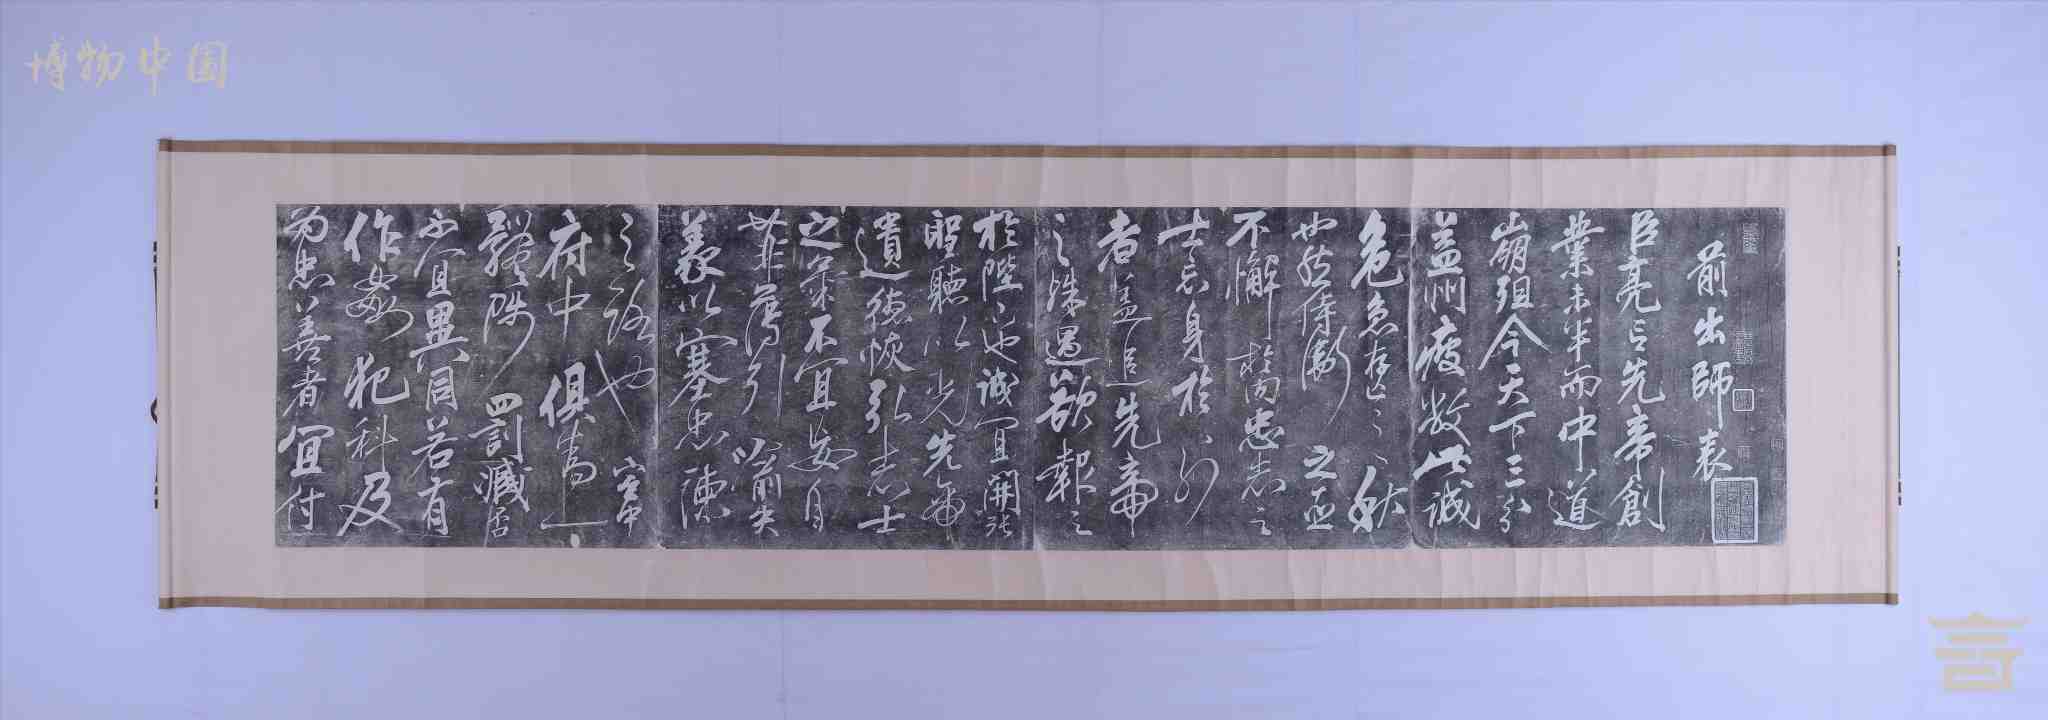 博物中国
前出師表
臣亮言先帝創
業未半而中道
崩殂今天下三分
益州疲敝此誠
危急存亡之秋
也然侍衛之臣
不懈於内忠志之
士忘身於外
者蓋追先帝
之殊遇欲報之
於陛下也誠宜開張
聖聽以光先帝
遺德恢弘志士
之氣不宜妄自
菲薄引喻失
義以塞忠諫
之路也宮中
府中俱為一
體陟罰臧否
不宜異同若有
作姦犯科及
為忠善者宜付